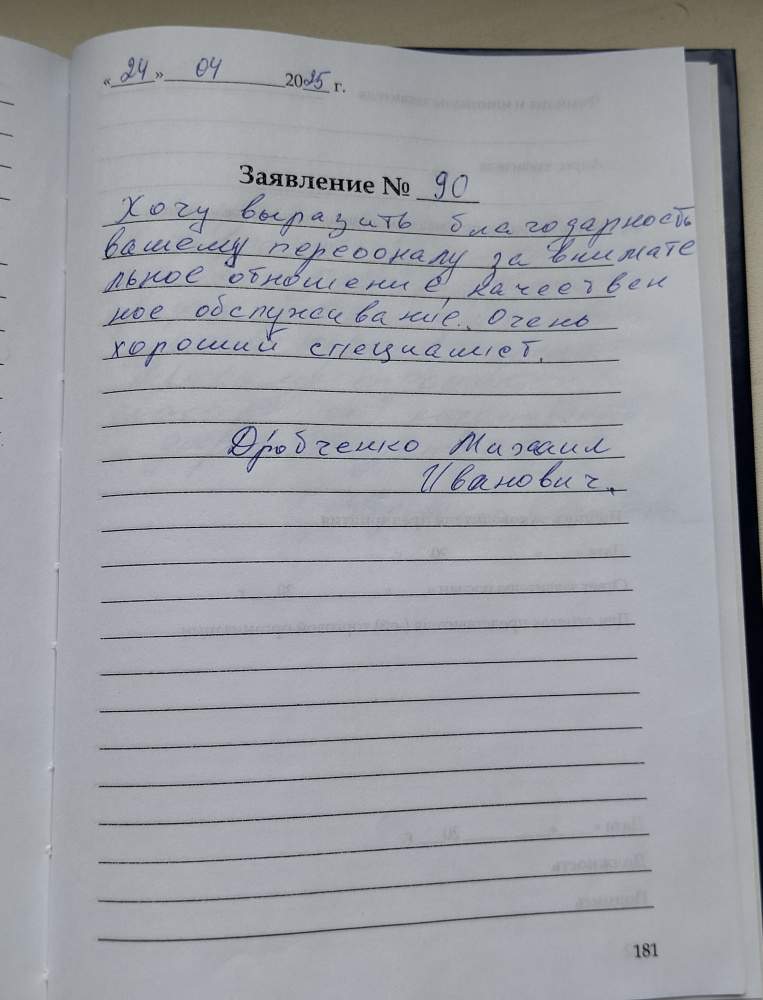 «24» 04 2025 г.
Заявление № 90
Хочу выразить благодарность
вашему персоналу за внимате
льное отношение, качествен
ное обслуживание. Очень
хороший специалист.
Дробченко Михаил
Иванович.
181